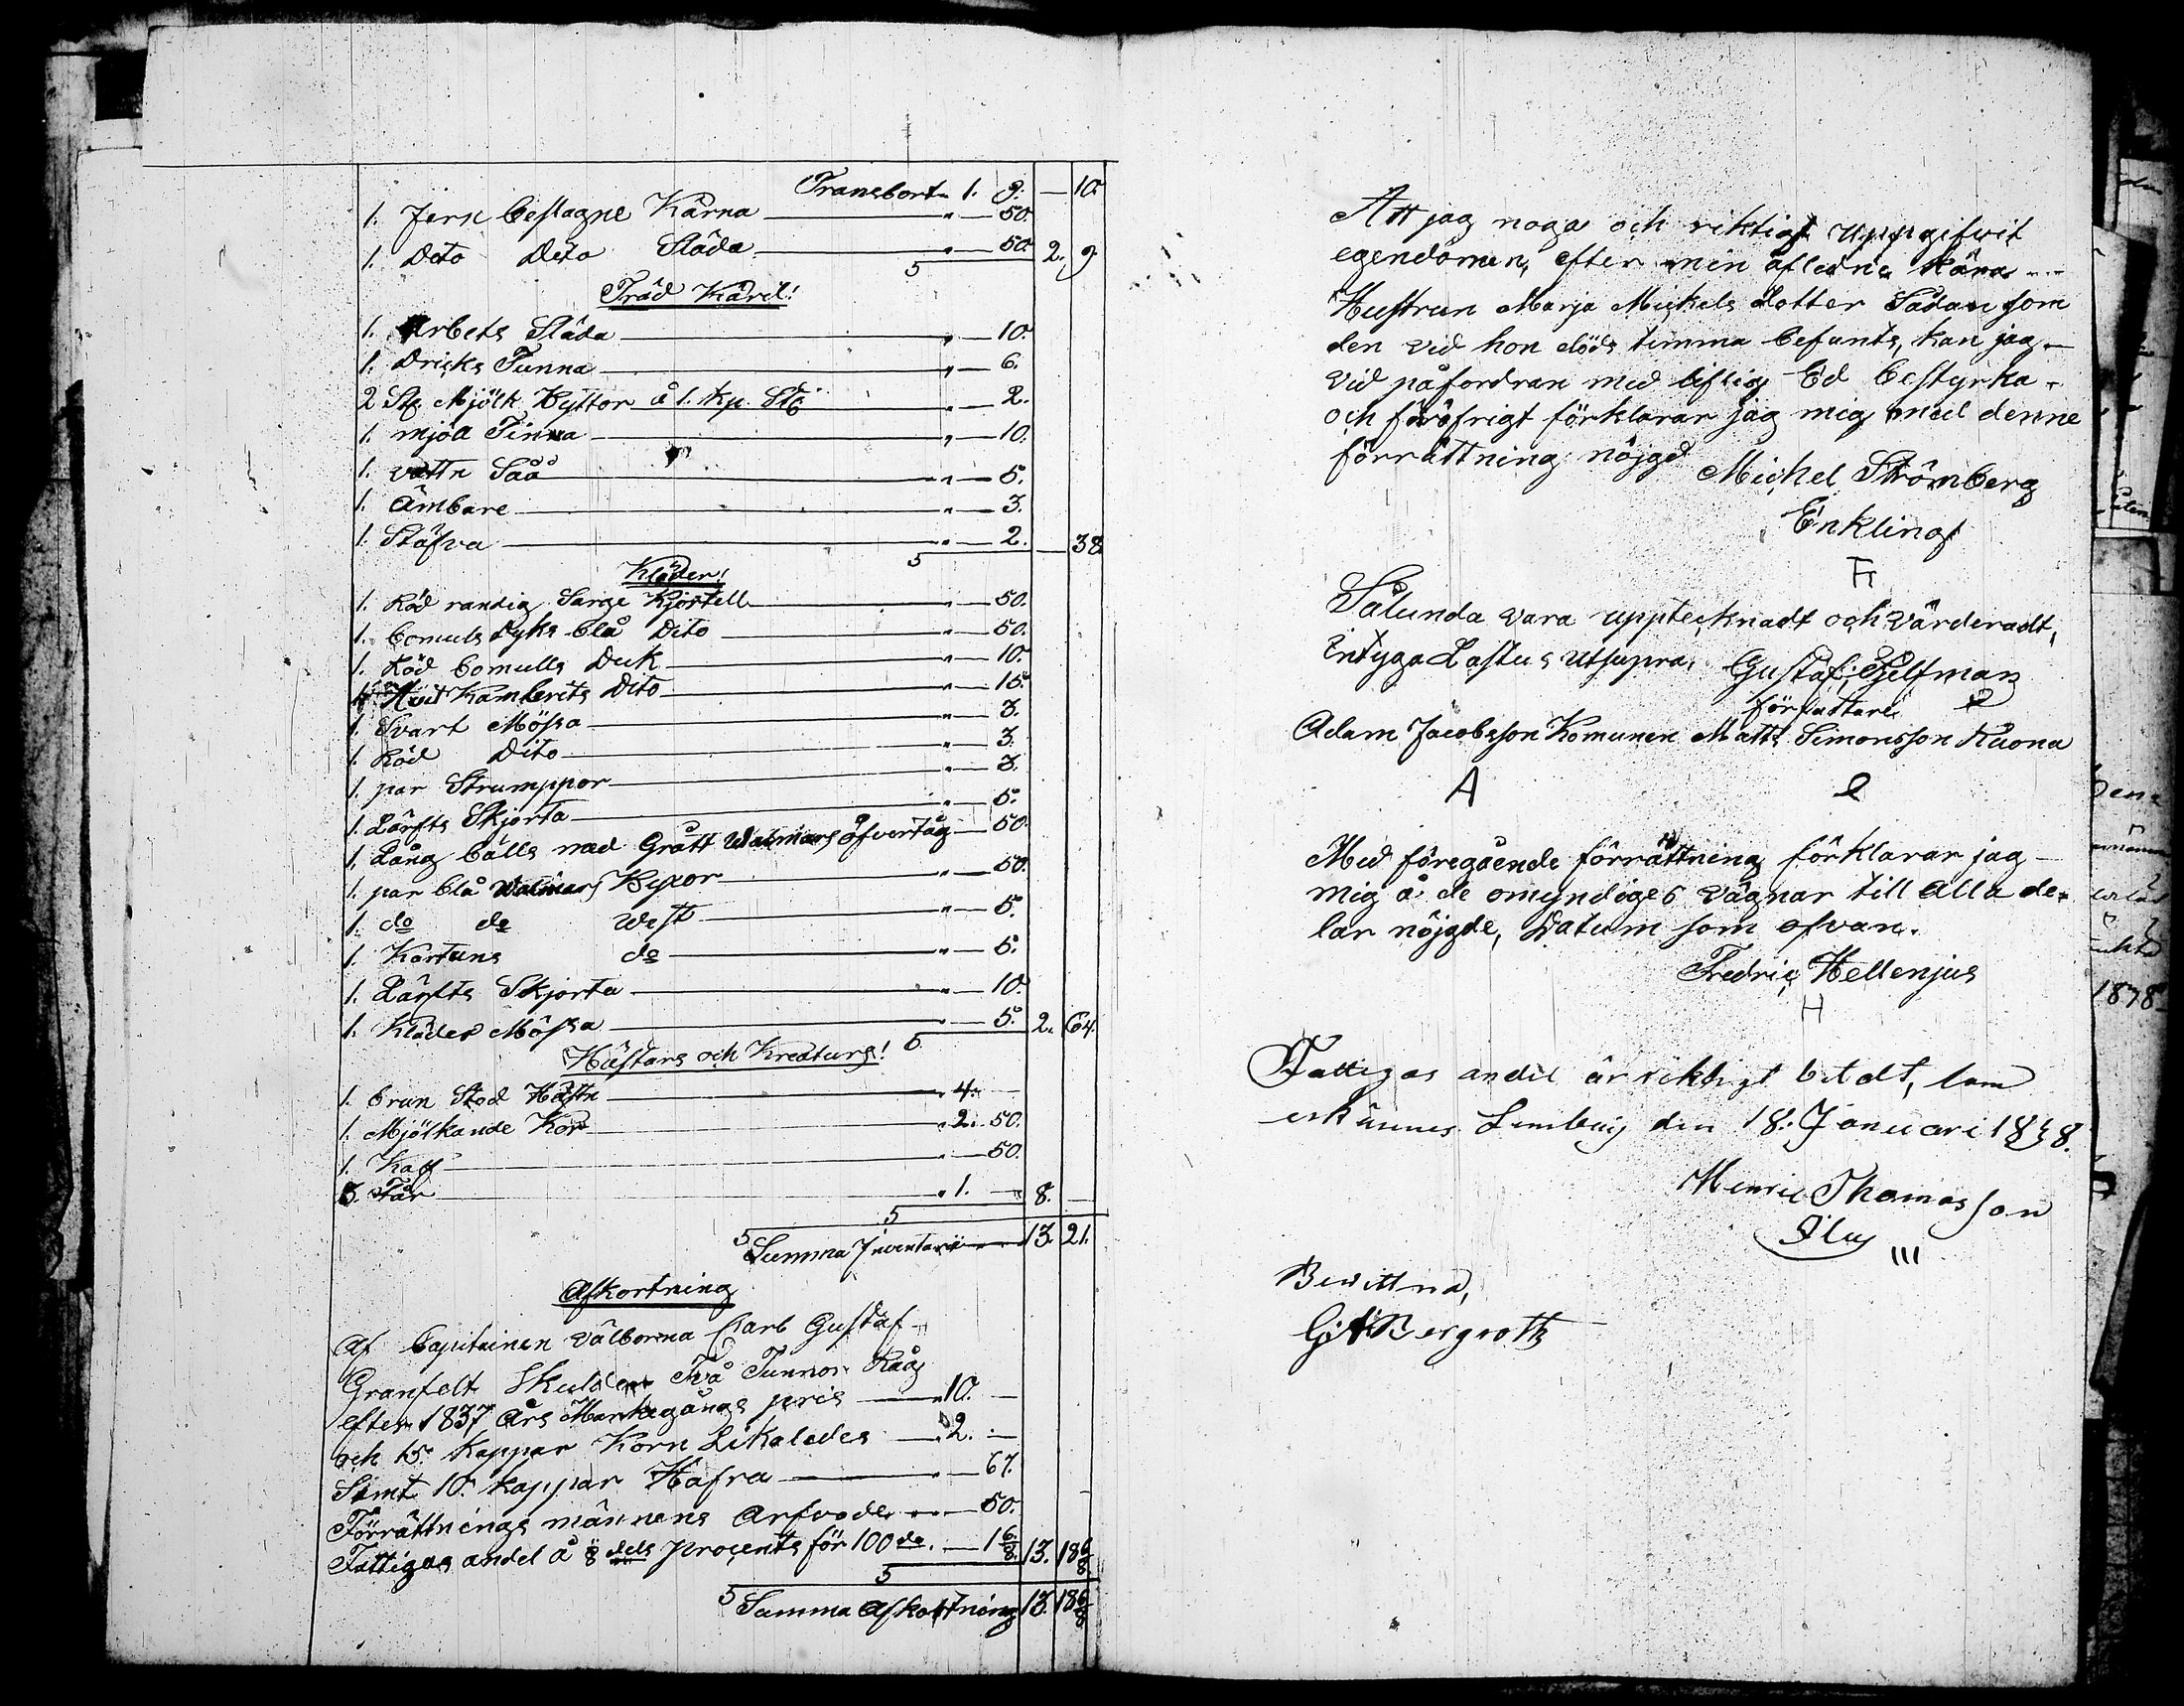 Transport 1. 9. — 10.
1. Jern beslagne Kärna " — 50.
1. Dito Dito Släda " — 50. 2. 9.
Träd Käril!
1. Arbets Släda " — 10.
1. Dricks Tunna " — 6.
2 St. Mjölk Byttor å 1. kp. St. " — 2.
1. mjöl Tinna " — 10.
1. vattn Såå " — 5.
1. Ämbare " — 3.
1. Stäfva " — 2. — 38
Kläder!
1. Röd randig Sarge Kjortell " — 50.
1. bomuls Tyks blå Dito " — 50.
1. Röd bomulls Duk " — 10.
1. Hvit Kambrits Dito " — 15.
1. Svart Mössa " — 3.
1. Röd Dito " — 3.
1. par Strumppor " — 3.
1. Lärfts Skjorta " — 5.
1. Lång bälls med Grått Walmars öfvertåg — 50.
1. par blå Walmars Byxor " — 50.
1. do do West " — 5.
1. Kartuns do " — 5.
1. Lärfts Skjorta " — 10.
1. Klädes Mössa " — 5. 2. 64.
Hästars och Kreaturs!
1. brun Stod Hästn " 4. —
1. Mjölkande Kor " 2. 50.
1. Kalf " — 50.
3 Får " 1. — 8. —
Summa Inventarii 13. 21.
Afkortning
Af Capitainen Välborna Carl Gustaf
Granfelt Skulden Två Tunnor Råg
efter 1837 Års Markegångs pris " 10. —
och 15. Kappar Korn Likaledes " 2. —
Samt 10. kappar Hafra " — 67.
Förrättnings männens Arfvode " — 50.
Fattigas andel å 8 dels procents för 100 de. — 1 6/8. 13. 18 6/8
Summa Afkortning 13. 18 6/8
Att jag noga och riktigt uppgifvit
egendomen, efter min aflidna kära
Hustrun Marja Mickels dotter Sådan som
den vid hon döds timma befunts, kan jag
vid påfordran med liflig Ed bestyrka
och föröfrigt förklarar jag mig med denne
förrättning nöjgd
Michel Strömberg
Enkling
Sålunda vara upptecknadt och värderadt,
Intyga Lastus utsupra. Gustaf
författare
Adam Jacobsson Komunen Matts Simonsson Kuona
A
Med föregående förrättning förklarar jag
mig å de omyndiges vägnar till alla de-
lar nöjgde, Datum som ofvan.
Fredric Hellenjus
H
Fattigas andel är riktigt betalt, som
erkännes den 18. Januari 1838.
Henric Thomasson
III
Bewittna,
Bergroth